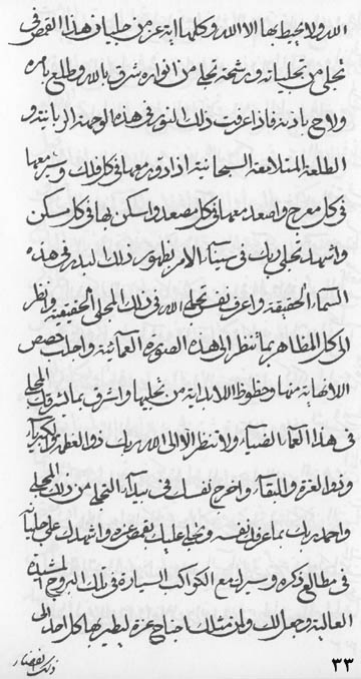 الله ولا يحيط بها الا الله وكلها اية عز من جليات هذا القمص في
تجلى من تجلياته ورشحة تجلى من انواره شرق بالله وطلع بامره
ولاح باذنه فاذا عرفت ذلك النور في هذه الوجهة الربانية و
الطلعة المتلائعة السبحانية اذا دور معها في كل فلك وسر معها
في كل معرج واصعد معها في كل مصعد واسكن بها في كل مسكن
واشهد تجلى ربك في سيناء الامر بظهور ذلك البدر في هذه
السماء الحقيقة واعرف نفس تجلى الله في ذلك المجلى الحقيقية وانظر
الى كل المظاهر بما تنظر الى هذه الصورة العمائية واطلب حصص
اللانهاية منها وحظوظ اللابداية من تجليها واشرق بما اشرق لك المجلى
في هذا العماء الضياء ولا تنظر الا الى الله ربك ذو العظمة والكبرياء
وذو العزة والبقاء واخرج نفسك في بيداء التجلى من ذلك المجلى
واحمد ربك بما عرفك نفسه وتجلى عليك بقمص عزه واشهدك على
في مطالع ذكره وسير مع الكواكب السيارة في تلك البروج المشيدة
العالية وجعل لك ولمن مثلك جناح عزة لتطير بها كل احد الى
ذلك الفضاء
٣٣